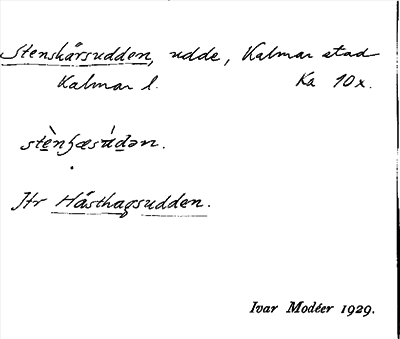 Stenskärsudden, udde, Kalmar stad
Kalmar l. Ka 10x.
stènʃæsúdən.
Jfr Hästhagsudden.
Ivar Modéer 1929.